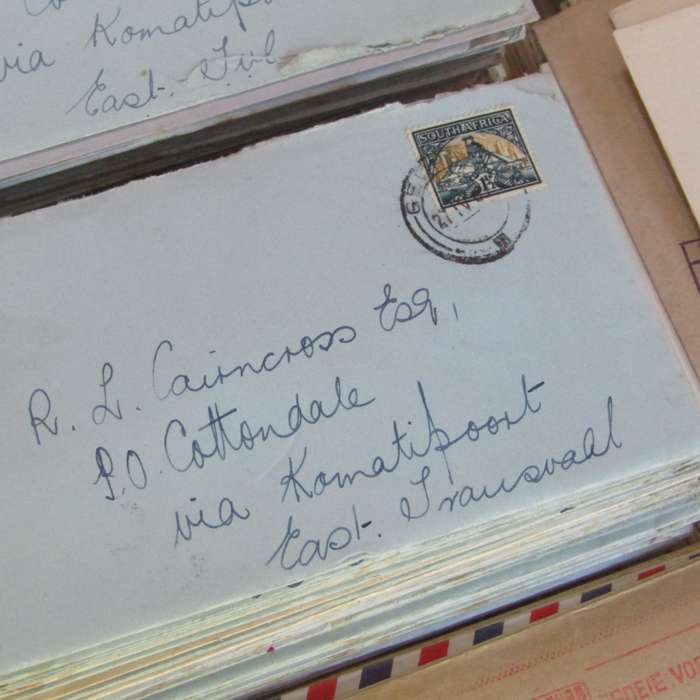 via Komatipo
East. Tvl
SOUTH AFRICA
R. L. Cairncross Esq,
P.O. Cottondale
via Komatipoort
East. Transvaal